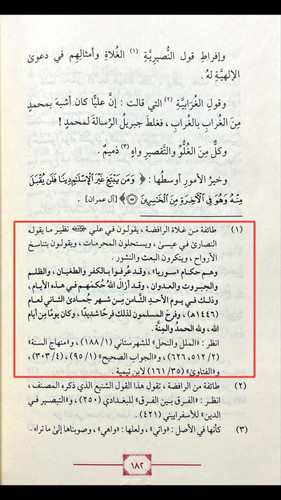 وإفراطِ قولِ النُّصيريَّةِ (١) الغُلاةِ وأمثالِهِم في دعوى
الإلهيَّةِ لهُ.
وقولِ الغُرابيَّةِ (٢) التي قالت: إنَّ عليًّا كان أشبهَ بمحمدٍ
مِنَ الغُرابِ بالغُرابِ، فغلطَ جبريلُ الرِّسالةَ لمحمدٍ!
وكلٌّ مِنَ الغُلُوِّ والتَّقصيرِ واهٍ (٣) ذميمٌ.
وخيرُ الأمورِ أوسطُها: ﴿وَمَن يَبْتَغِ غَيْرَ الْإِسْلَامِ دِينًا فَلَن يُقْبَلَ
مِنْهُ وَهُوَ فِي الْآخِرَةِ مِنَ الْخَاسِرِينَ ﴾ [آل عمران].
(١) طائفة من غلاة الرافضة، يقولون في علي نظير ما يقوله
النصارى في عيسى، ويستحلون المحرمات، ويقولون بتناسخ
الأرواح، وينكرون البعث والنشور.
وهم حكام «سوريا»، وقد عُرفوا بالكفر والطغيان، والظلم
والجبروت والعدوان، وقد أزال اللهُ حُكمَهُم في هذه الأيام،
وذلك في يوم الأحدِ الثَّامنِ مِن شهرِ جُمادى الثاني لعام
(١٤٤٦هـ)، وفرحَ المسلمون لذلك فرحًا شديدًا، وكان يومًا مِن أيامِ
الله، وللهِ الحمدُ والمِنَّة.
انظر: «الملل والنحل» للشهرستاني (١٨٨/١)، و«منهاج السنة»
(٥١٢/٢، ٦٢٦)، و«الجواب الصحيح» (٩٥/١)، (٣٠٣/٤)،
و«الفتاوى» (١٦١/٣٥) لابن تيمية.
(٢) طائفة من الرافضة، تقول هذا القول الشنيع الذي ذكره المصنف،
انظر: «الفرق بين الفرق» للبغدادي (٢٥٠)، و«التبصير في
الدين» للأسفراييني (٤٢١).
(٣) كأنها في الأصل: «واتي»، ولعلها: «واهي»، وصوبناها إلى ما تراه.
١٨٢